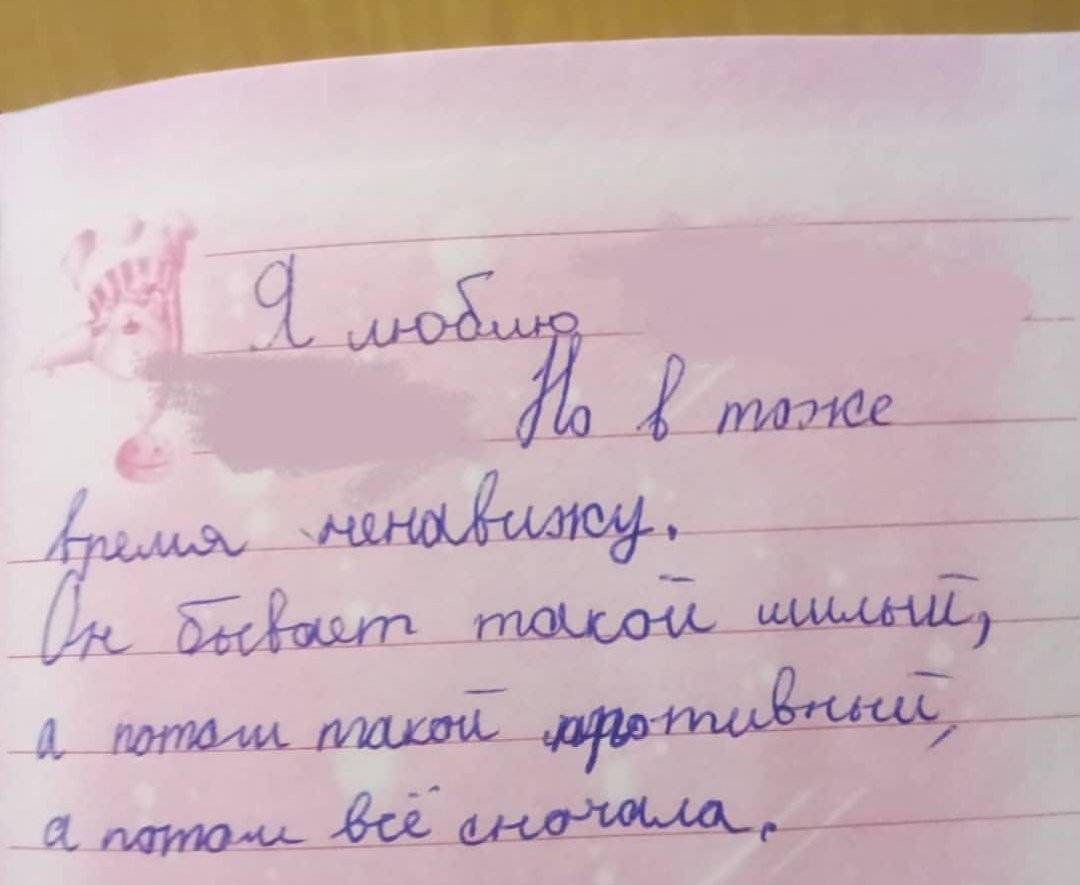 Я люблю
Но в тоже
время ненавижу.
Он бывает такой милый,
а потом такой противный,
а потом всё сначала.